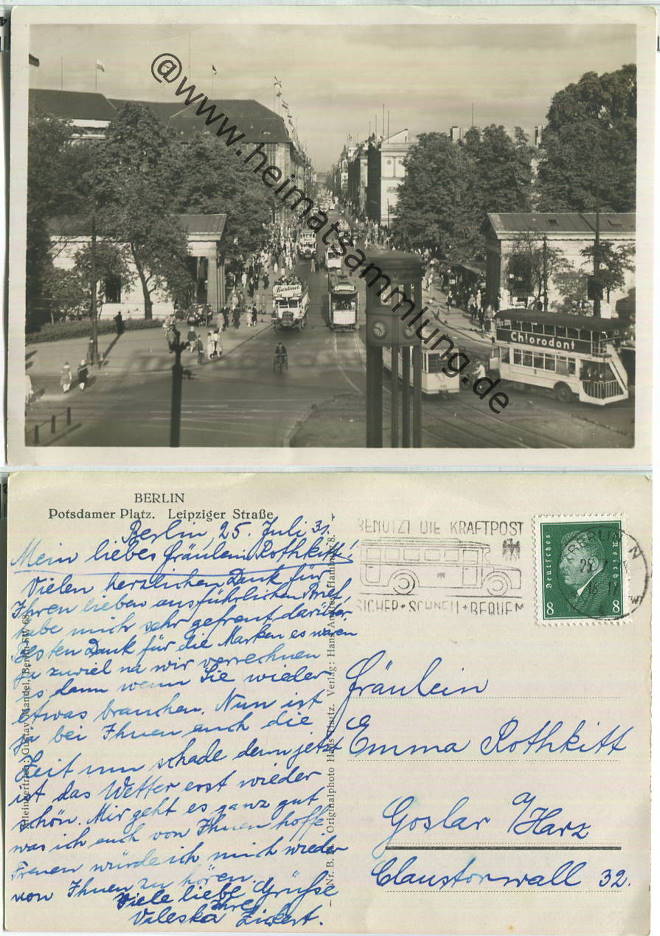 @www.heimatsammlung.de
Berliner
Chlorodont
BERLIN
Potsdamer Platz. Leipziger Straße
Berlin, 25. Juli 31.
Mein liebes Fräulein Rothkitt!
Vielen herzlichen Dank für
Ihren lieben ausführlichen Brief,
habe mich sehr gefreut darüber.
Besten Dank für die Marken es waren
ja zuviel na wir verrechnen
es dann wenn Sie wieder
etwas brauchen. Nun ist
ja bei Ihnen auch die
Zeit um schade denn jetzt
ist das Wetter erst wieder
schön. Mir geht es ganz gut
was ich auch von Ihnen hoffe.
Freuen würde ich mich wieder
von Ihnen zu hören.
Viele liebe Grüße
Ihre
Valeska
BENUTZT DIE KRAFTPOST
SICHER + SCHNELL + BEQUEM
Deutsches Reich
8 8
BERLIN N
Fräulein
Emma Rothkitt
Goslar a/Harz
Claustorwall 32.